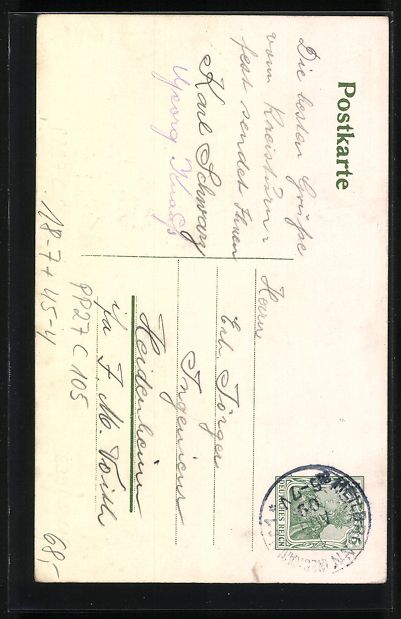 Postkarte
Die besten Grüße
vom Kreisturn-
fest sendet Ihnen
Karl Schwarz
Georg
Herrn
Erh. Jörger
Ingenieur
Heidenheim
i/fa J. M. Voith
DEUTSCHES REICH
HEILBRONN
18-7+ 45-4
PP27 C 105
68,-